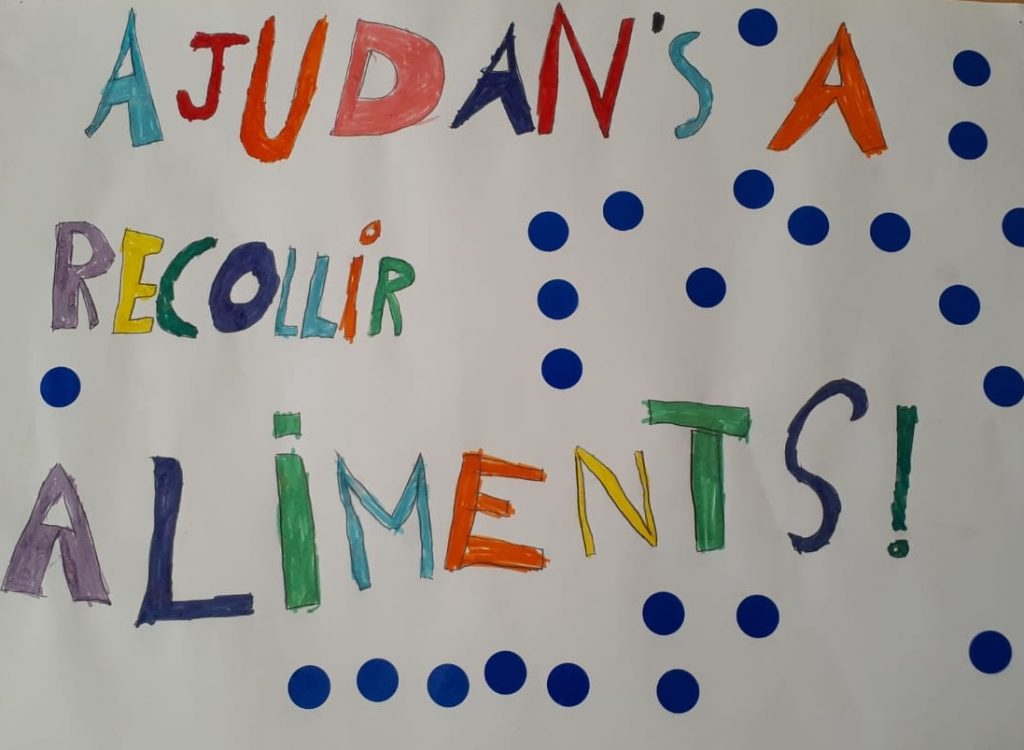 AJUDAN'S A
RECOLLiR
ALiMENTS!